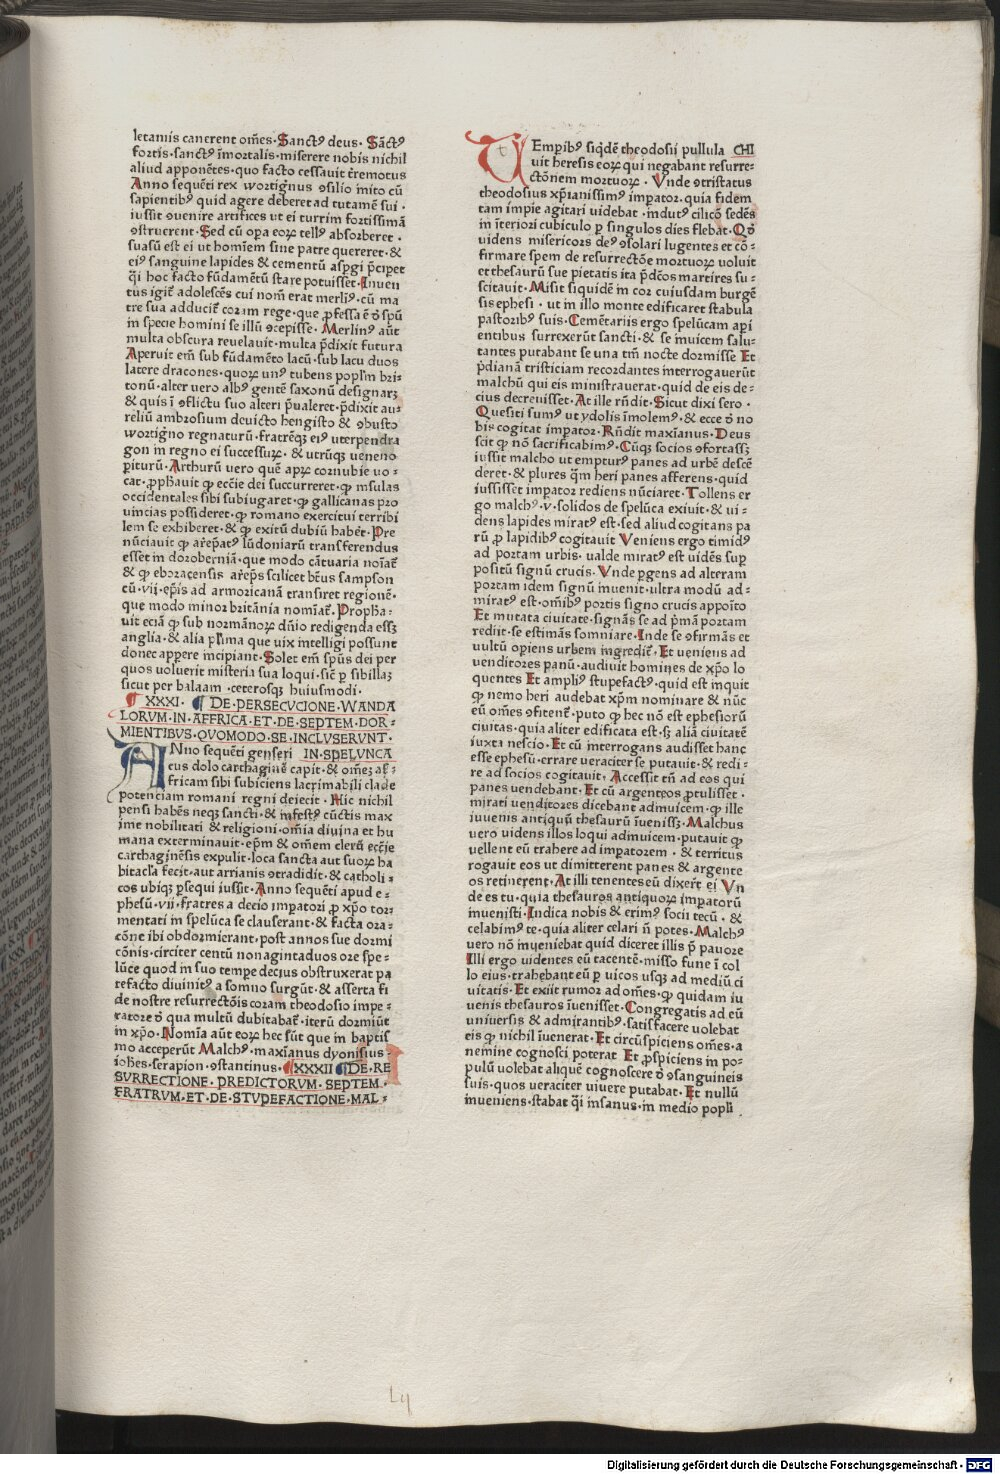 letaniis canerent om̄es·Sanctꝰ deus· Sāctꝰ
fortis·sanctꝰ īmortalis·miserere nobis nichil
aliud apponētes·quo facto cessauit t̄remotus
Anno sequēti rex wortignus ꝯsilio inito cū
sapientibꝰ quid agere deberet ad tutamē sui ·
iussit ꝯuenire artifices ut ei turrim fortissimā
ꝯstruerent·Sed cū oꝑa eoꝝ tellꝰ absorberet ·
suasū est ei ut homīem sine patre quereret·&
eiꝰ sanguine lapides & cementū asꝑgi p̄cipet
q̄i hoc facto fūdamētū stare potuisset·Inuen
tus igit̄ adolescēs cui nom̄ erat merliꝰ·cū ma
tre sua adducit̄ coram rege·que ꝓfessa ē ꝺ spū
in specie homini se illū ꝯcepisse·Merlinꝰ aūt
multa obscura reuelauit·multa p̄dixit futura
Aperuit em̄ sub fūdamēto lacū·sub lacu duos
latere dracones·quoꝝ unꝰ rubens popl̄m bri-
tonū·alter uero albꝰ gentē saxonū designarꝫ
& quis ī ꝯflictu suo alteri p̄ualeret·p̄dixit au-
reliū ambrosium deuicto hengisto & ꝯbusto
wortigno regnaturū·fratrēqꝫ eiꝰ uterpendra
gon in regno ei successurꝫ·& utrūqꝫ ueneno
ꝑiturū·Arthurū uero quē apꝫ cornubie uo-
cat·ꝓpħauit ꝙ ecc̄ie dei succurreret·ꝙ insulas
occidentales sibi subiugaret·ꝙ gallicanas pro
uincias possideret·ꝙ romano exercitui terribi
lem se exhiberet·& ꝙ exitū dubiū haber̄t·Pre
nūciauit ꝙ ar̄ep̄at̄ lūdoniarū transferendus
esset in doroberniā·que modo cātuaria noīat̄
& ꝙ eboracensis ar̄ep̄s scilicet bt̄us sampson
cū·vii·ep̄is ad armoricanā transiret regionē·
que modo minor britānia nomīat̄·Propħa-
uit eciā ꝙ sub normānoꝝ dn̄io redigenda essꝫ
anglia·& alia pl̄ima que uix intelligi possunt
donec apꝑere incipiant·Solet em̄ spūs dei per
quos uoluerit misteria sua loqui·sic̄ ꝑ sibillaꝫ
sicut per balaam·ceterosqꝫ huiusmodi·
¶ XXXI· ¶ DE·PERSECVCIONE·WANDA
LORVM·IN·AFFRICA·ET·DE·SEPTEM·DOR-
MIENTIBVS·QVOMODO·SE·INCLVSERVNT·
ANno sequēti genseri IN·SPELVNCA
cus dolo carthaginē capit·& omēꝫ af-
fricam sibi subiciens lacrimabili clade
potenciam romani regni deiecit·Hic nichil
pensi habēs neqꝫ sancti·& infestꝰ cūctis max
ime nobilitati & religioni·om̄ia diuina et hu
mana exterminauit·ep̄m & om̄em clerū ecc̄ie
carthaginēsis expulit·loca sancta aut suoꝝ ha
bitacl̄a fecit·aut arrianis ꝯtradidit·& catholi-
cos ubiqꝫ ꝑsequi iussit·Anno sequēti apud e-
phesū·vii·fratres a decio imꝑatori ꝓ xp̄o tor-
mentati in spelūca se clauserant·& facta ora-
cōne ibi obdormierant·post annos sue dormi
cōnis·circiter centū nonagintaduos ore spe-
lūce quod in suo tempe decius obstruxerat pa
tefacto diuinitꝰ a somno surgūt·& asserta fi
de nostre resurrectōis coram theodosio impe-
ratore ꝺ qua multū dubitabat̄·iterū dormiūt
in xp̄o·Nomīa aūt eoꝝ hec sūt que in baptis
mo acceperūt Malchꝰ·maxianus dyonisius-
ioħes·serapion·ꝯstantinus·¶XXXII ¶DE·RE
SVRRECTIONE·PREDICTORVM·SEPTEM·
FRATRVM·ET·DE·STVPEFACTIONE·MAL-
TEmpibꝰ siq̄dē theodosii pullula CHI
uit heresis eoꝝ qui negabant resurre-
ctōnem mortuoꝝ · Vnde ꝯtristatus
theodosius xp̄ianissimꝰ imꝑator·quia fidem
tam impie agitari uidebat·indutꝰ cilicō sedēs
in īteriori cubiculo ꝑ singulos dies flebat·Qꝺ
uidens misericors deꝰ ꝯsolari lugentes et cō-
firmare spem de resurrectōe mortuoꝝ uoluit
et thesaurū sue pietatis ita p̄dc̄os martires su-
scitauit·Misit siquidē in cor cuiusdam burgē
sis ephesi · ut in illo monte edificaret stabula
pastoribꝰ suis·Cemētariis ergo spelūcam api
entibus surrexerūt sancti·& se inuicem salu-
tantes putabant se una tm̄ nocte dormisse Et
p̄dianā tristiciam recordantes interrogauerūt
malchū qui eis ministrauerat·quid de eis de-
cius decreuisset·At ille rn̄dit·Sicut dixi sero·
Quesiti sumꝰ ut ydolis īmolemꝰ·& ecce ꝺ no
bis cogitat imꝑator·Rn̄dit maxianus·Deus
scit ꝙ nō sacrificabimꝰ·Cūqꝫ socios ꝯfortassꝫ
iussit malcho ut empturꝰ panes ad urbē descē
deret·& plures q̄m heri panes afferens·quid
iussisset imꝑator rediens nūciaret·Tollens er
go malchꝰ·v·solidos de spelūca exiuit·& ui-
dens lapides miratꝰ est·sed aliud cogitans pa
rū ꝓ lapidibꝰ cogitauit Veniens ergo timidꝰ
ad portam urbis· ualde miratꝰ est uidēs suꝑ
positū signū crucis·Vnde ꝑgens ad alteram
portam idem signū inuenit·ultra modū ad-
miratꝰ est·om̄ibꝰ portis signo crucis apposito
Et mutata ciuitate·signās se ad p̄mā portam
rediit·se estimās somniare·Inde se ꝯfirmās et
uultū oꝑiens urbem ingredit̄·Et ueniens ad
uenditores panū·audiuit homines de xp̄o lo
quentes Et ampliꝰ stupefactꝰ·quid est inquit
ꝙ nemo heri audebat xp̄m nominare & nūc
eū om̄es ꝯfitent̄·puto ꝙ hec nō est ephesiorū
ciuitas·quia aliter edificata est·sꝫ aliā ciuitatē
iuxta nescio·Et cū interrogans audisset hanc
esse ephesū·errare ueraciter se putauit·& redi-
re ad socios cogitauit· Accessit tn̄ ad eos qui
panes uendebant·Et cū argenteos ꝓtulisset·
mirati uenditores dicebant adinuicem·ꝙ ille
iuuenis antiquū thesaurū īuenissꝫ·Malchus
uero uidens illos loqui adinuicem·putauit ꝙ
uellent eū trahere ad imꝑatorem · & territus
rogauit eos ut dimitterent panes & argente
os retinerent·At illi tenentes eū dixer̄t ei Vn
de es tu·quia thesauros antiquoꝝ imꝑatorū
inuenisti·Indica nobis & erimꝰ socii tecū · &
celabimꝰ te·quia aliter celari n̄ potes·Malchꝰ
uero nō inueniebat quid diceret illis p̄ pauore
Illi ergo uidentes eū tacentē·misso fune ī col
lo eius·trahebant eū ꝑ uicos usqꝫ ad mediū ci
uitatis·Et exiit rumor ad om̄es·ꝙ quidam iu
uenis thesauros īuenisset·Congregatis ad eū
uniuersis & admirantibꝰ·satisfacere uolebat
eis ꝙ nichil īuenerat·Et circūspiciens om̄es·a
nemine cognosci poterat Et ꝓspiciens in po-
pulū uolebat aliquē cognoscere ꝺ ꝯsanguineis
suis·quos ueraciter uiuere putabat·Et nullū
inueniens·stabat q̄i insanus·in medio popli
Digitalisierung gefördert durch die Deutsche Forschungsgemeinschaft · DFG